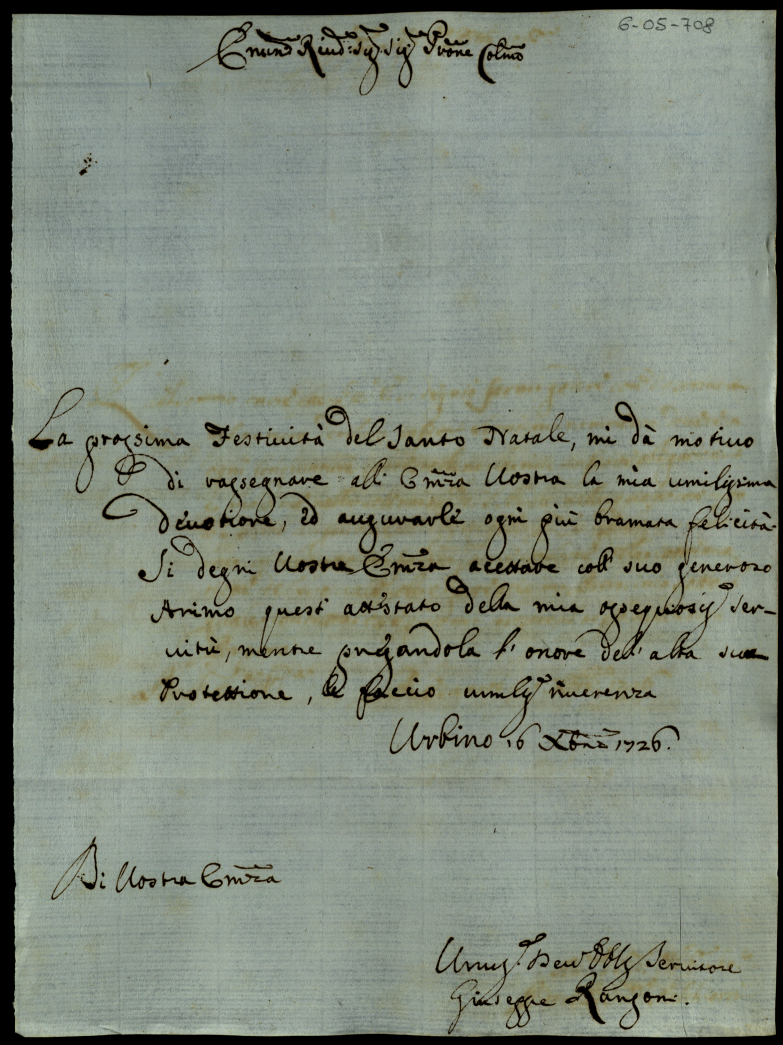 6-05-708
Emin.o Riud.o Sig.r Sig.r Prone Colmo
La prossima Festiuità del Santo Natale, mi dà motiuo
di rassegnare all' Emza Uostra la mia umilissima
deuotione, ed augurarle ogni più bramata felicità.
Si degni Uostra Emza accettare coll suo generoso
Animo quest' attestato della mia ossequiosis.ma ser-
uitù, mentre pregandola l' onore dell' alta sua
Protettione, le faccio umilis.ma riuerenza
Urbino 16 Xbre 1726.
Di Uostra Emza
Umis.o Deu.o Obl.o Seruitore
Giuseppe Rangoni.